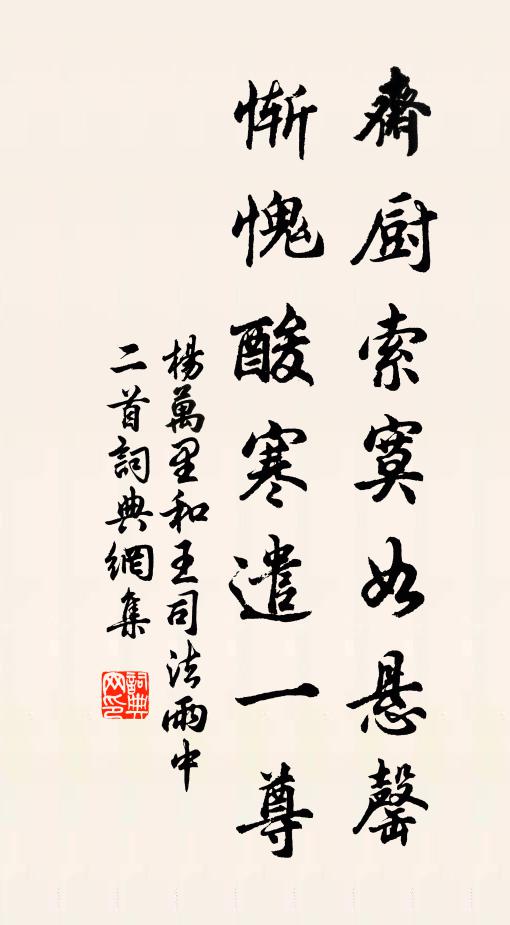 齋厨索寞如悬罄
惭愧酸寒遣一尊
楊萬里和王司法雨中
二首詞典網集
詞典
网印